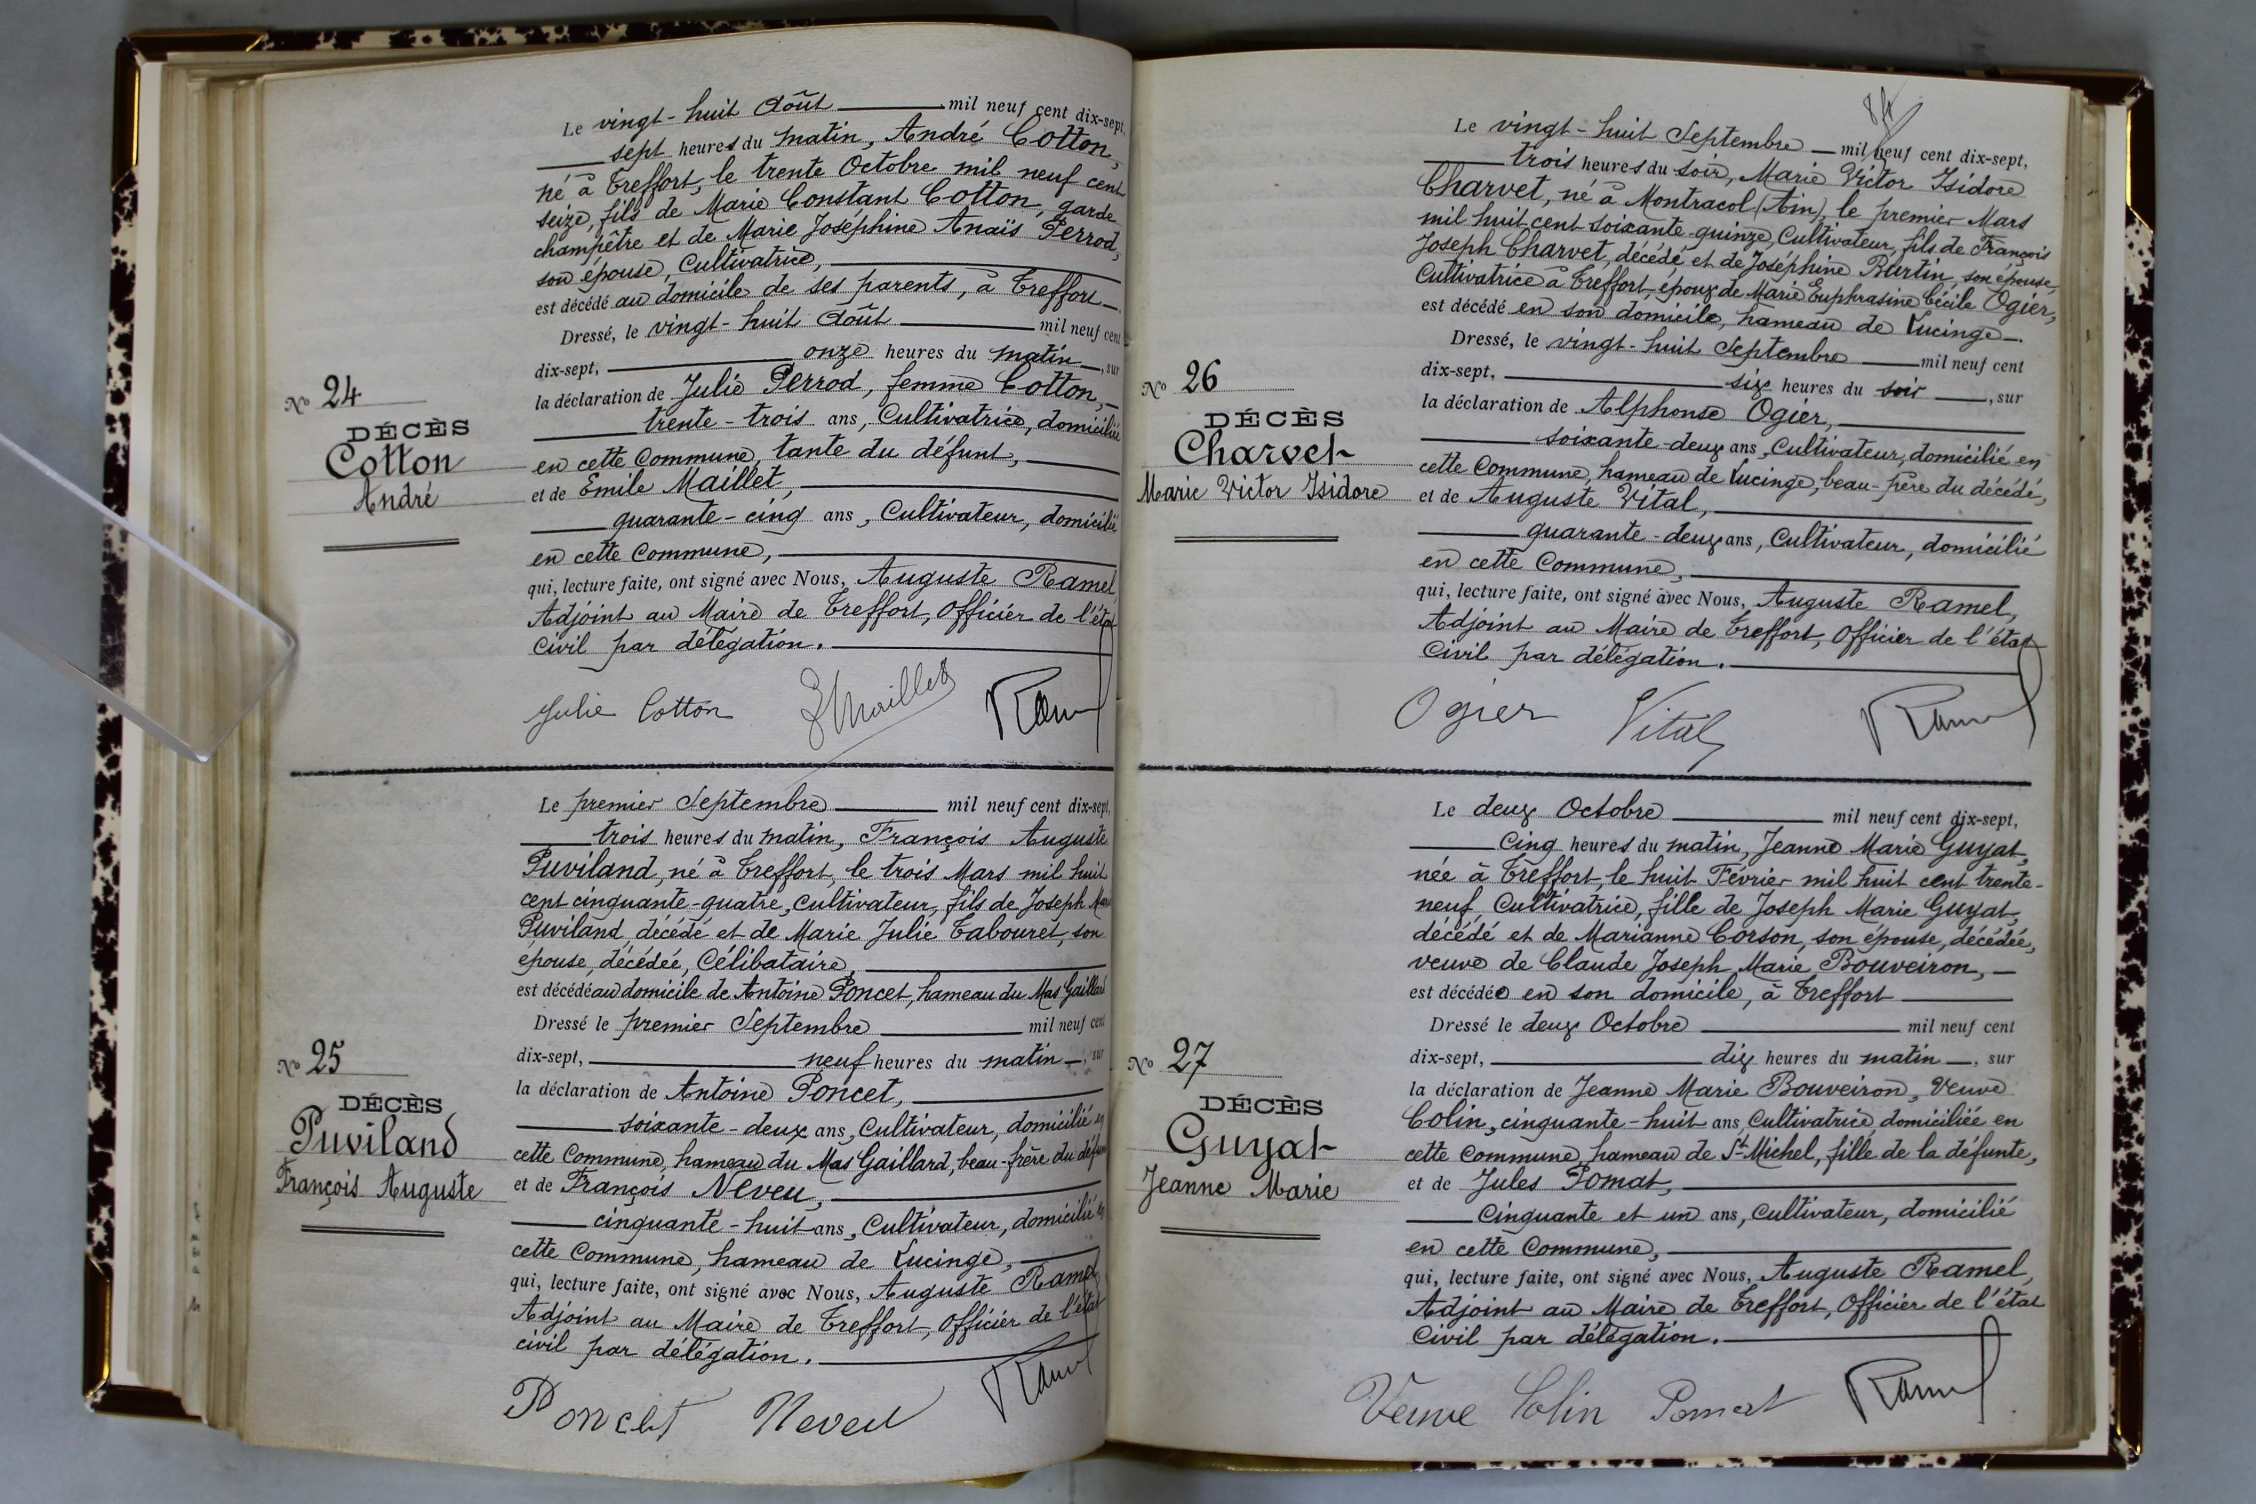 Le vingt-huit Août mil neuf cent dix-sept,
sept heures du matin, André Cotton,
né à Treffort, le trente Octobre mil neuf cent
seize, fils de Marie Constant Cotton, garde
champêtre et de Marie Joséphine Anaïs Perrod,
son épouse, Cultivatrice,
est décédé au domicile de ses parents, à Treffort
Dressé, le vingt-huit Août mil neuf cent
dix-sept, onze heures du matin, sur
la déclaration de Julie Perrod, femme Cotton,
trente-trois ans, Cultivatrice, domiciliée
en cette Commune, tante du défunt,
et de Emile Maillet,
quarante-cinq ans, Cultivateur, domicilié
en cette Commune,
qui, lecture faite, ont signé avec Nous, Auguste Ramel,
Adjoint au Maire de Treffort, Officier de l'état
Civil par délégation.
Julie Cotton E Maillet Ramel
No 24
DÉCÈS
Cotton
André
Le premier Septembre mil neuf cent dix-sept,
trois heures du matin, François Auguste
Puviland, né à Treffort, le trois Mars mil huit
cent cinquante-quatre, Cultivateur, fils de Joseph Marie
Puviland, décédé et de Marie Julie Tabouret, son
épouse, décédée, Célibataire,
est décédé au domicile de Antoine Poncet, hameau du Mas Gaillard
Dressé le premier Septembre mil neuf cent
dix-sept, neuf heures du matin, sur
la déclaration de Antoine Poncet,
soixante-deux ans, Cultivateur, domicilié en
cette Commune, hameau du Mas Gaillard, beau-frère du défunt
et de François Neveu,
cinquante-huit ans, Cultivateur, domicilié en
cette Commune, hameau de Lucinge,
qui, lecture faite, ont signé avec Nous, Auguste Ramel
Adjoint au Maire de Treffort, Officier de l'état
civil par délégation.
Poncet Neveu Ramel
No 25
DÉCÈS
Puviland
François Auguste
84
Le vingt-huit Septembre mil neuf cent dix-sept,
trois heures du soir, Marie Victor Isidore
Charvet, né à Montracol (Ain), le premier Mars
mil huit cent soixante-quinze, Cultivateur, fils de François
Joseph Charvet, décédé et de Joséphine Burtin, son épouse,
Cultivatrice à Treffort, époux de Marie Euphrasine Cécile Ogier,
est décédé en son domicile, hameau de Lucinge.
Dressé, le vingt-huit Septembre mil neuf cent
dix-sept, six heures du soir, sur
la déclaration de Alphonse Ogier,
soixante-deux ans, Cultivateur, domicilié en
cette Commune, hameau de Lucinge, beau-père du décédé,
et de Auguste Vital,
quarante-deux ans, Cultivateur, domicilié
en cette Commune,
qui, lecture faite, ont signé avec Nous, Auguste Ramel,
Adjoint au Maire de Treffort, Officier de l'état
Civil par délégation.
Ogier Vital Ramel
No 26
DÉCÈS
Charvet
Marie Victor Isidore
Le deux Octobre mil neuf cent dix-sept,
Cinq heures du matin, Jeanne Marie Guyat,
née à Treffort, le huit Février mil huit cent trente-
neuf, Cultivatrice, fille de Joseph Marie Guyat,
décédé et de Marianne Corson, son épouse, décédée,
veuve de Claude Joseph Marie Bouveiron,
est décédée en son domicile, à Treffort
Dressé le deux Octobre mil neuf cent
dix-sept, dix heures du matin, sur
la déclaration de Jeanne Marie Bouveiron, Veuve
Colin, cinquante-huit ans, Cultivatrice, domiciliée en
cette Commune, hameau de St Michel, fille de la défunte,
et de Jules Pomat,
Cinquante et un ans, Cultivateur, domicilié
en cette Commune,
qui, lecture faite, ont signé avec Nous, Auguste Ramel,
Adjoint au Maire de Treffort, Officier de l'état
Civil par délégation.
Veuve Colin Pomat Ramel
No 27
DÉCÈS
Guyat
Jeanne Marie